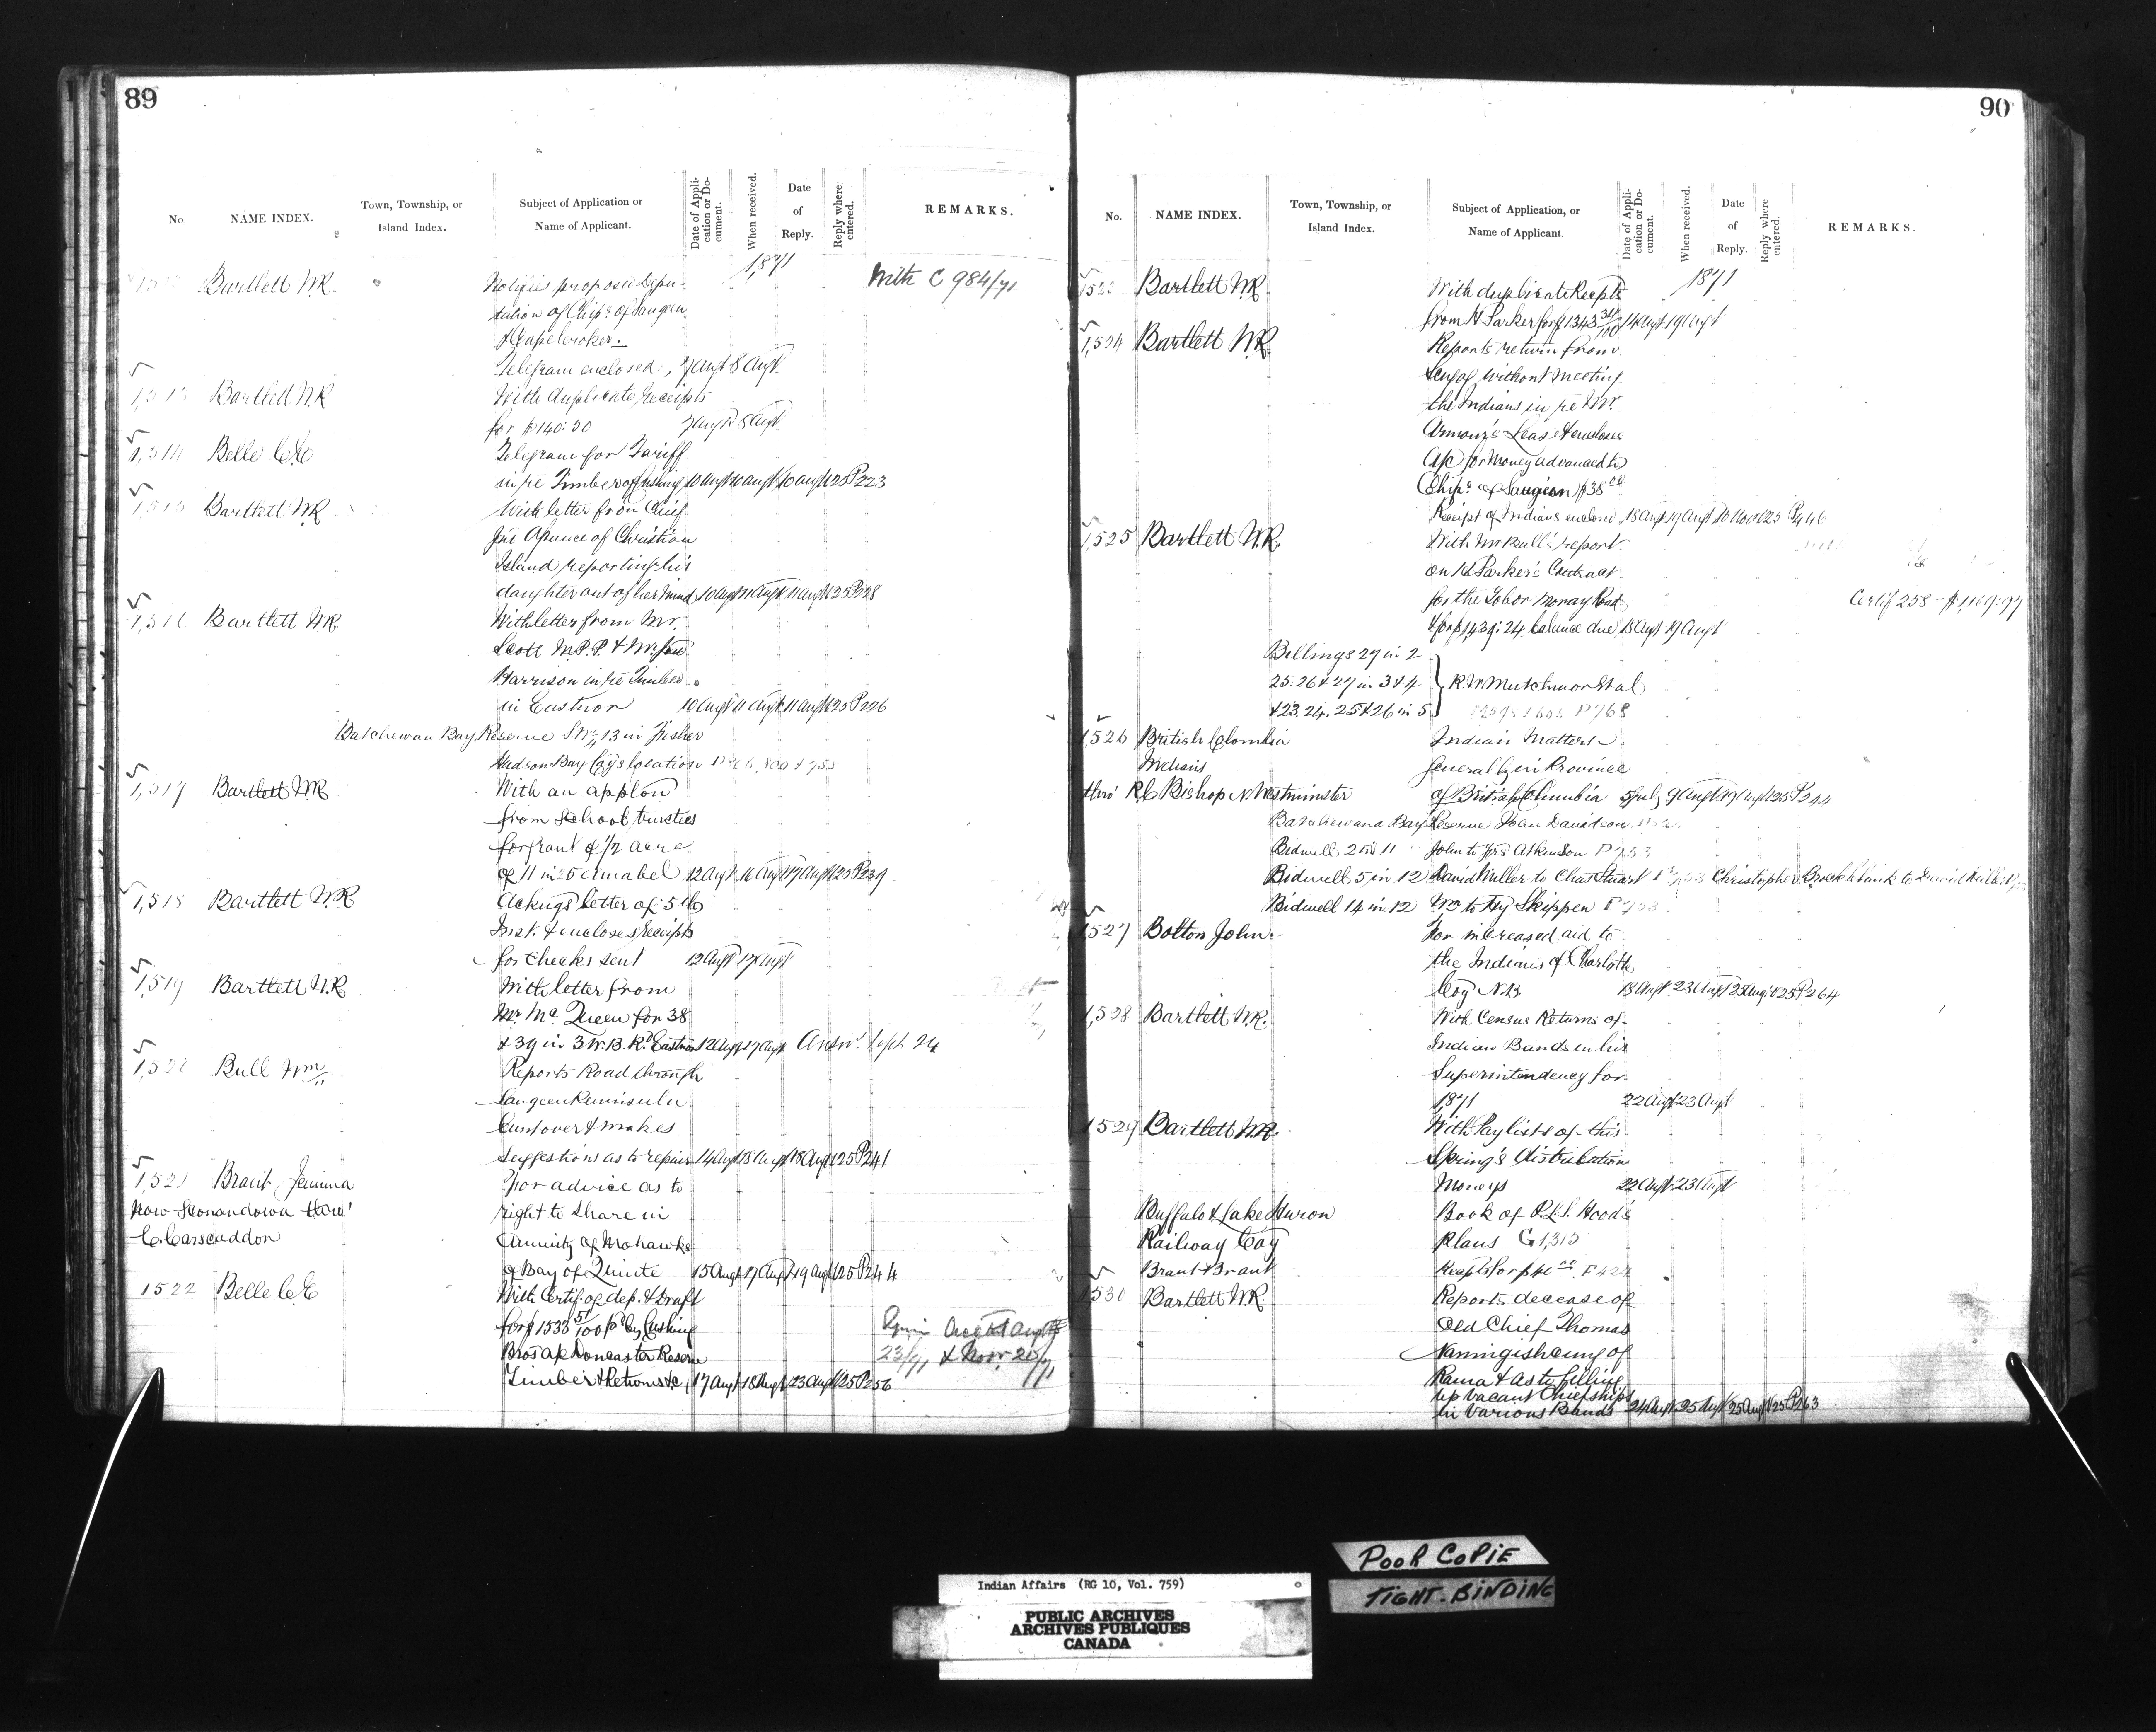 89
No.
NAME INDEX.
Town, Township, or Island Index.
Subject of Application or Name of Applicant.
Date of Application or Document.
When received.
Date of Reply.
Reply where entered.
REMARKS.
1871
Bartlett W.R. Notifies proposed Depu- With C 984/71
tation of Chips. of Saugeen
& Cape Croker.
Telegram enclosed 7 Augt 8 Augt
1,513 Bartlett W.R With duplicate receipts
for $140.50 7 Augt 8 Augt
1,514 Belle C.E Telegram for Tariff
in re Timber 10 Augt 10 Augt 10 Augt 125 P223
1,515 Bartlett W.R With letter from Chief
of Christian
Island reporting his
daughter out of her mind 10 Augt 11 Augt 11 Augt 125 P228
1,516 Bartlett W.R. With letter from Mr.
Scott M.P.P. &
Harrison in re Timber
in Eastnor 10 Augt 11 Augt 11 Augt 125 P226
Batchewan Bay Reserve 13 in Fisher
Hudson Bay Coys location
1,517 Bartlett W.R With an applon
from School trustees
for grant of 1/2 acre
of 11 in 25 Amabel 12 Augt 16 Augt 17 Augt 125 P239
1,518 Bartlett W.R Ackngs letter of 5th
Inst. & encloses receipts
for Checks sent 12 Augt 17 Augt
1,519 Bartlett W.R With letter from
Mr. McQueen for 38
& 39 in 3 W.B.Rd Eastnor 12 Augt 17 Augt Answd. Sept 24
1,520 Bull Wm Reports Road through
Saugeen Peninsula
Cut over & makes
suggestions as to repairs 14 Augt 18 Augt 18 Augt 125 P241
1,521 Brant Jemima For advice as to
now thro' right to share in
C. Carscaddon Annuity of Mohawks
of Bay of Quinte 15 Augt 17 Augt 19 Augt 125 P244
1522 Belle C.E With Certif. of dep. & Draft
for $1533 51/100 pd. by Cushing
Bros a/c Doncaster Reserve 23/71 & Novr 20/71
Timber & returns &c 17 Augt 18 Augt 23 Augt 125 P256
90
No.
NAME INDEX.
Town, Township, or Island Index.
Subject of Application, or Name of Applicant.
Date of Application or Document.
When received.
Date of Reply.
Reply where entered.
REMARKS.
1871
Bartlett W.R With duplicate Recpts
from H Parker for $1343 34/100 14 Augt 19 Augt
1,524 Bartlett W.R. Reports return from
without meeting
the Indians in re Mr.
Armour's Lease & encloses
A/c for Money advanced to
Chips. of Saugeen $38.00
Receipt of Indians enclosed 18 Augt 19 Augt 10 Novr 125 P446
1,525 Bartlett W.R. With Wm Bull's report
on H Parker's Contract
for the Tobermoray Road Certif 258
balance due 18 Augt 19 Augt
Billings 27 in 2
25. 26 & 27 in 3 & 4 R.W. Mutchmor et al
& 23. 24. 25 & 26 in 5
1,526 British Colombia Indian Matters
Indians generally in Province
thro' R.C Bishop N. Westminster of British Columbia 5 July 9 Augt 19 Augt 125 P244
Batchewana Bay Reserve John Davidson
Bidwell 2 in 11 John to Atkinson P753
Bidwell 5 in 12 David Miller to Chas Stuart Christopher Brockbank to David Miller
Bidwell 14 in 12 Hy Skippen
1,527 Bolton John For increased aid to
the Indians of Charlotte
Coy N.B. 18 Augt 23 Augt 25 Augt 125 P264
1,528 Bartlett W.R. With Census Returns of
Indian Bands in his
Superintendency for
1871 22 Augt 23 Augt
1529 Bartlett W.R. With Paylists of this
Spring's distribution
Moneys 22 Augt 23 Augt
Buffalo & Lake Huron Book of P.L.S. Hood's
Railway Coy Plans G 1,313
Brant & Brant
1,530 Bartlett W.R. Reports decease of
Old Chief Thomas
Naningishcung of
Rama & as to filling
up vacant Chiefships
in various Bands 24 Augt 25 Augt 25 Augt 125 P263
Indian Affairs (RG 10, Vol. 759)
PUBLIC ARCHIVES
ARCHIVES PUBLIQUES
CANADA
POOR COPIE
TIGHT-BINDING